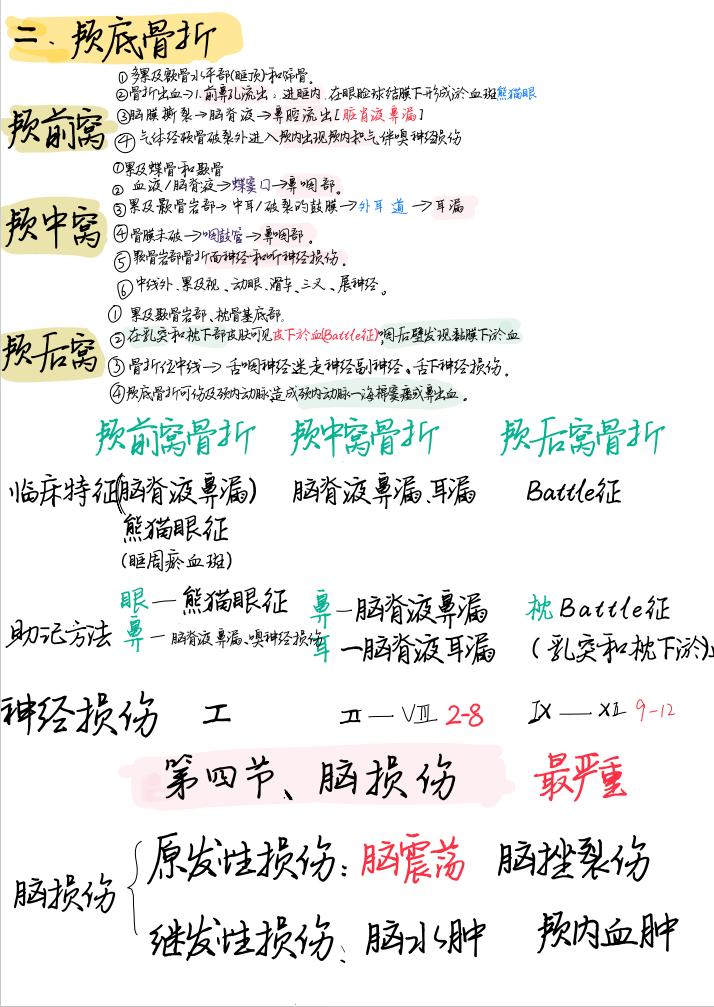 二、颅底骨折
①多累及额骨水平部(眶顶)和筛骨。
②骨折出血→1.前鼻孔流出;进眶内,在眼睑球结膜下形成淤血斑熊猫眼
颅前窝
③脑膜撕裂→脑脊液→鼻腔流出[脑脊液鼻漏]
④气体经额骨破裂外进入颅内出现颅内积气伴嗅神经损伤
①累及蝶骨和颞骨
②血液/脑脊液→蝶窦口→鼻咽部。
颅中窝
③累及颞骨岩部→中耳/破裂的鼓膜→外耳道→耳漏
④骨膜未破→咽鼓管→鼻咽部。
⑤颞骨岩部骨折面神经和听神经损伤。
⑥中线外、累及视、动眼、滑车、三叉、展神经。
①累及颞骨岩部、枕骨基底部.
②在乳突和枕下部皮肤可见皮下淤血(Battle征),咽后壁发现黏膜下淤血
颅后窝
③骨折位中线→舌咽神经迷走神经副神经、舌下神经损伤。
④颅底骨折可伤及颈内动脉,造成颈内动脉—海绵窦瘘或鼻出血。
颅前窝骨折 颅中窝骨折 颅后窝骨折
临床特征(脑脊液鼻漏) 脑脊液鼻漏、耳漏 Battle征
熊猫眼征
(眶周瘀血斑)
眼—熊猫眼征 鼻—脑脊液鼻漏 枕Battle征
助记方法 鼻—脑脊液鼻漏、嗅神经损伤 耳—脑脊液耳漏 (乳突和枕下淤)
神经损伤 I II—VIII 2-8 IX—XII 9-12
第四节、脑损伤 最严重
原发性损伤:脑震荡 脑挫裂伤
脑损伤
继发性损伤:脑水肿 颅内血肿